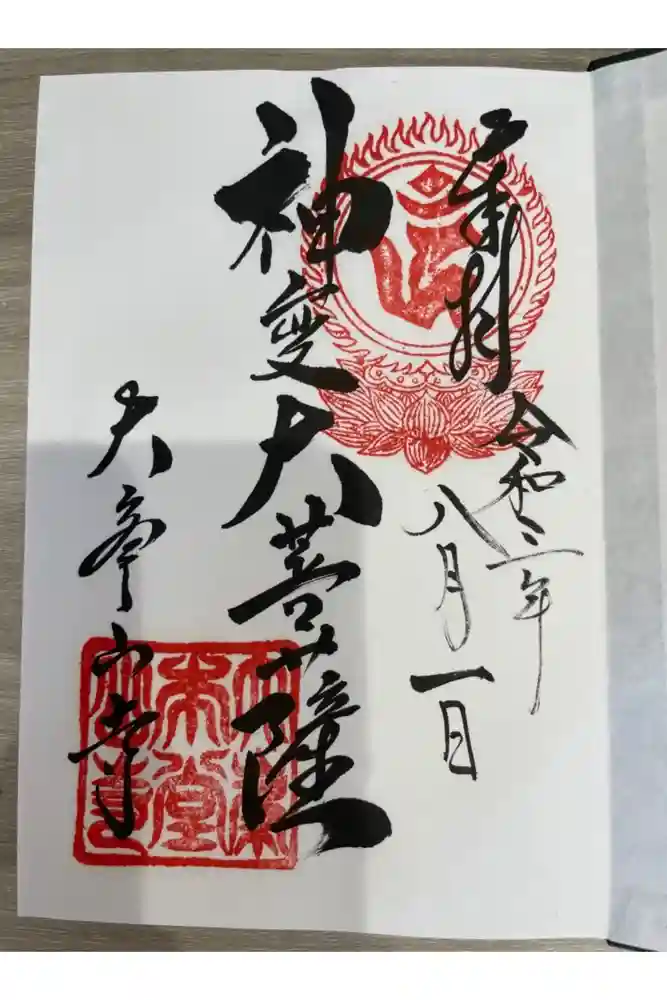 奉拝
令和二年
八月一日
神変大菩薩
大峯山寺
本堂